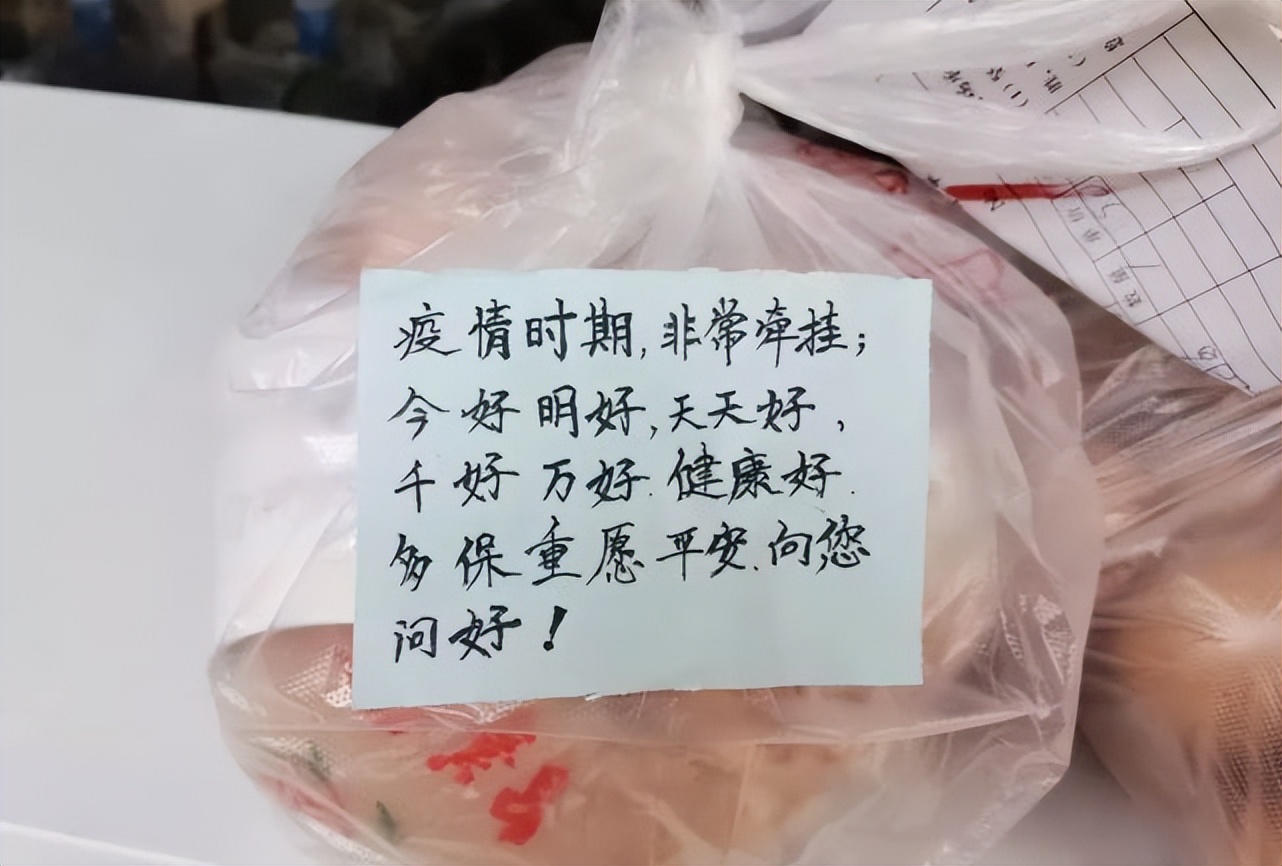 疫情时期,非常牵挂;
今好明好,天天好,
千好万好.健康好.
多保重愿平安.向您
问好!
数量
单价